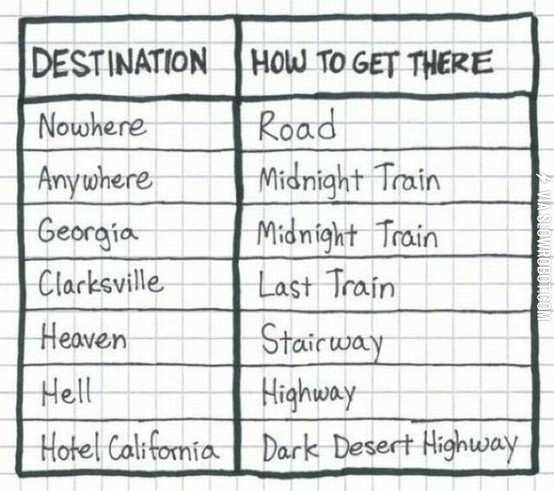 DESTINATION HOW TO GET THERE
Nowhere Road
Anywhere Midnight Train
Georgia Midnight Train
Clarksville Last Train
Heaven Stairway
Hell Highway
Hotel California Dark Desert Highway
VIA SLOWROBOT.COM